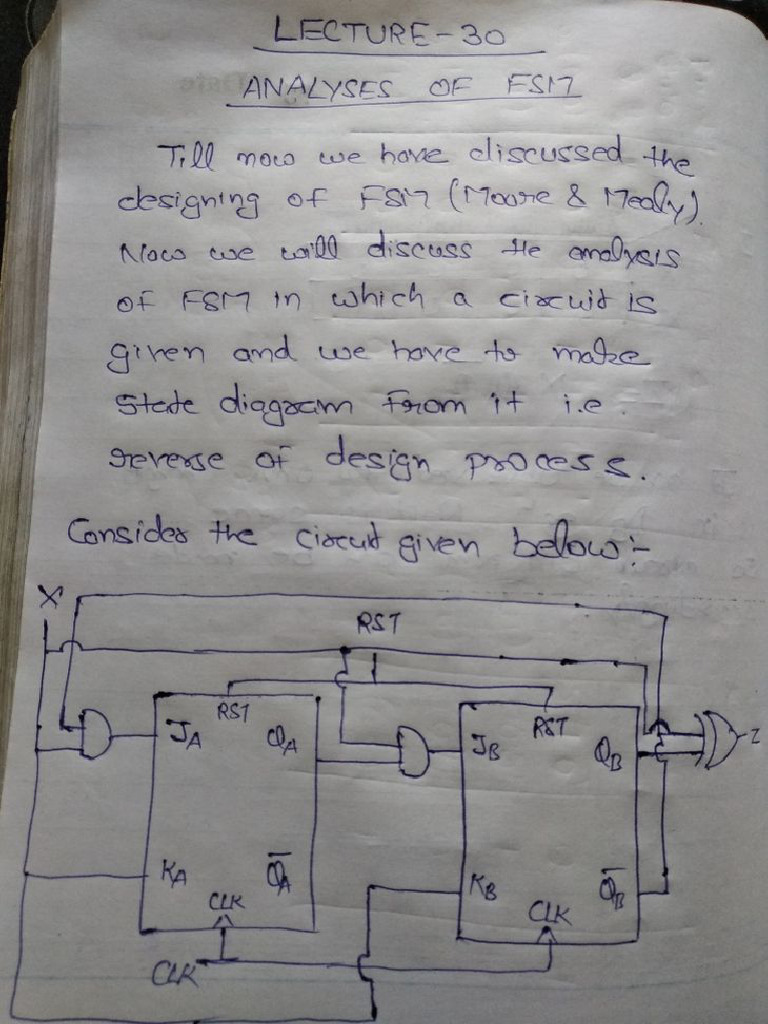 LECTURE-30
ANALYSES OF FSM
Till now we have discussed the
designing of FSM (Moore & Mealy).
Now we will discuss the analysis
of FSM in which a circuit is
given and we have to make
state diagram from it i.e.
reverse of design process.
Consider the circuit given below:-
X
RST
RST
RST
JA
QA
JB
QB
Z
KA
Q̅A
KB
Q̅B
CLK
CLK
CLK